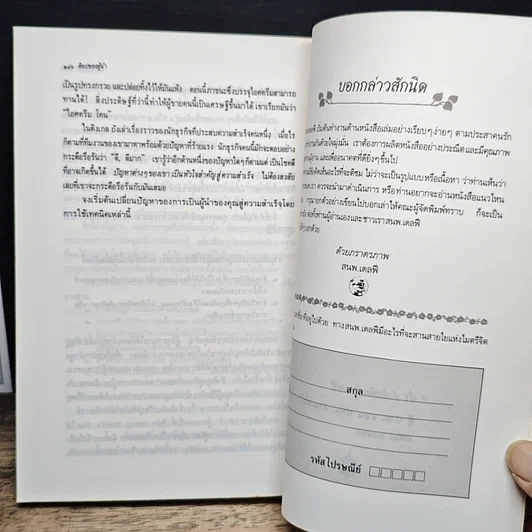 ๒๑๖ ศิลปของผู้นำ
เป็นรูปทรงกรวย และปล่อยทิ้งไว้ให้มันแห้ง ตอนนี้ภาชนะซึ่งรูปไอศครีมสามารถ
ทานได้! สิ่งประดิษฐ์ที่ว่านี้ทำให้ผู้ชายคนนี้เป็นเศรษฐีขึ้นมาได้ เขาเรียกมันว่า
"ไอศครีม โคน"
ในดิงเกล ยังเล่าเรื่องราวของนักธุรกิจที่ประสบความสำเร็จคนหนึ่ง เมื่อไร
ก็ตามที่ทีมงานของเขามาหาพร้อมด้วยปัญหาที่ร้ายแรง นักธุรกิจคนนี้มักจะตอบอย่าง
กระตือรือร้นว่า "ดี, ดีมาก" เขารู้ว่าอีกด้านหนึ่งของปัญหาใดๆ ก็ตามแต่ เป็นโชคดี
ที่อาจเกิดขึ้นได้ ปัญหาต่างๆ ของเรา เป็นหัวใจสำคัญสู่ความสำเร็จ ไม่ต้องสงสัย
เลยที่เขาจะกระตือรือร้นกับมันเสมอ
จงเริ่มต้นเปลี่ยนปัญหาของการเป็นผู้นำของคุณสู่ความสำเร็จโดย
การใช้เทคนิคเหล่านี้
บอกกล่าวสักนิด
เป็นต้นทำงานด้านหนังสือเล่มอย่างเรียบๆ ง่ายๆ ตามประสาคนรัก
เราต้องการผลิตหนังสืออย่างประณีตและมีคุณภาพ
และเพื่ออนาคตที่ดียิ่งๆ ขึ้นไป
ไม่ว่าจะเป็นรูปแบบหรือเนื้อหา ว่าท่านเห็นว่า
ควรจะนำมาดำเนินการ หรือท่านอยากจะอ่านหนังสือแนวไหน
กรุณาด้วยการเขียนไปบอกเล่าให้คณะผู้จัดพิมพ์ทราบ ก็จะเป็น
ทั้งผู้อ่านเองและชาวเราสนพ.เดลฟี
ด้วยภราดรภาพ
สนพ.เดลฟี
ทางสนพ.เดลฟีมีอะไรที่จะสานสายใยแห่งไมตรีจิต
สกุล
รหัสไปรษณีย์